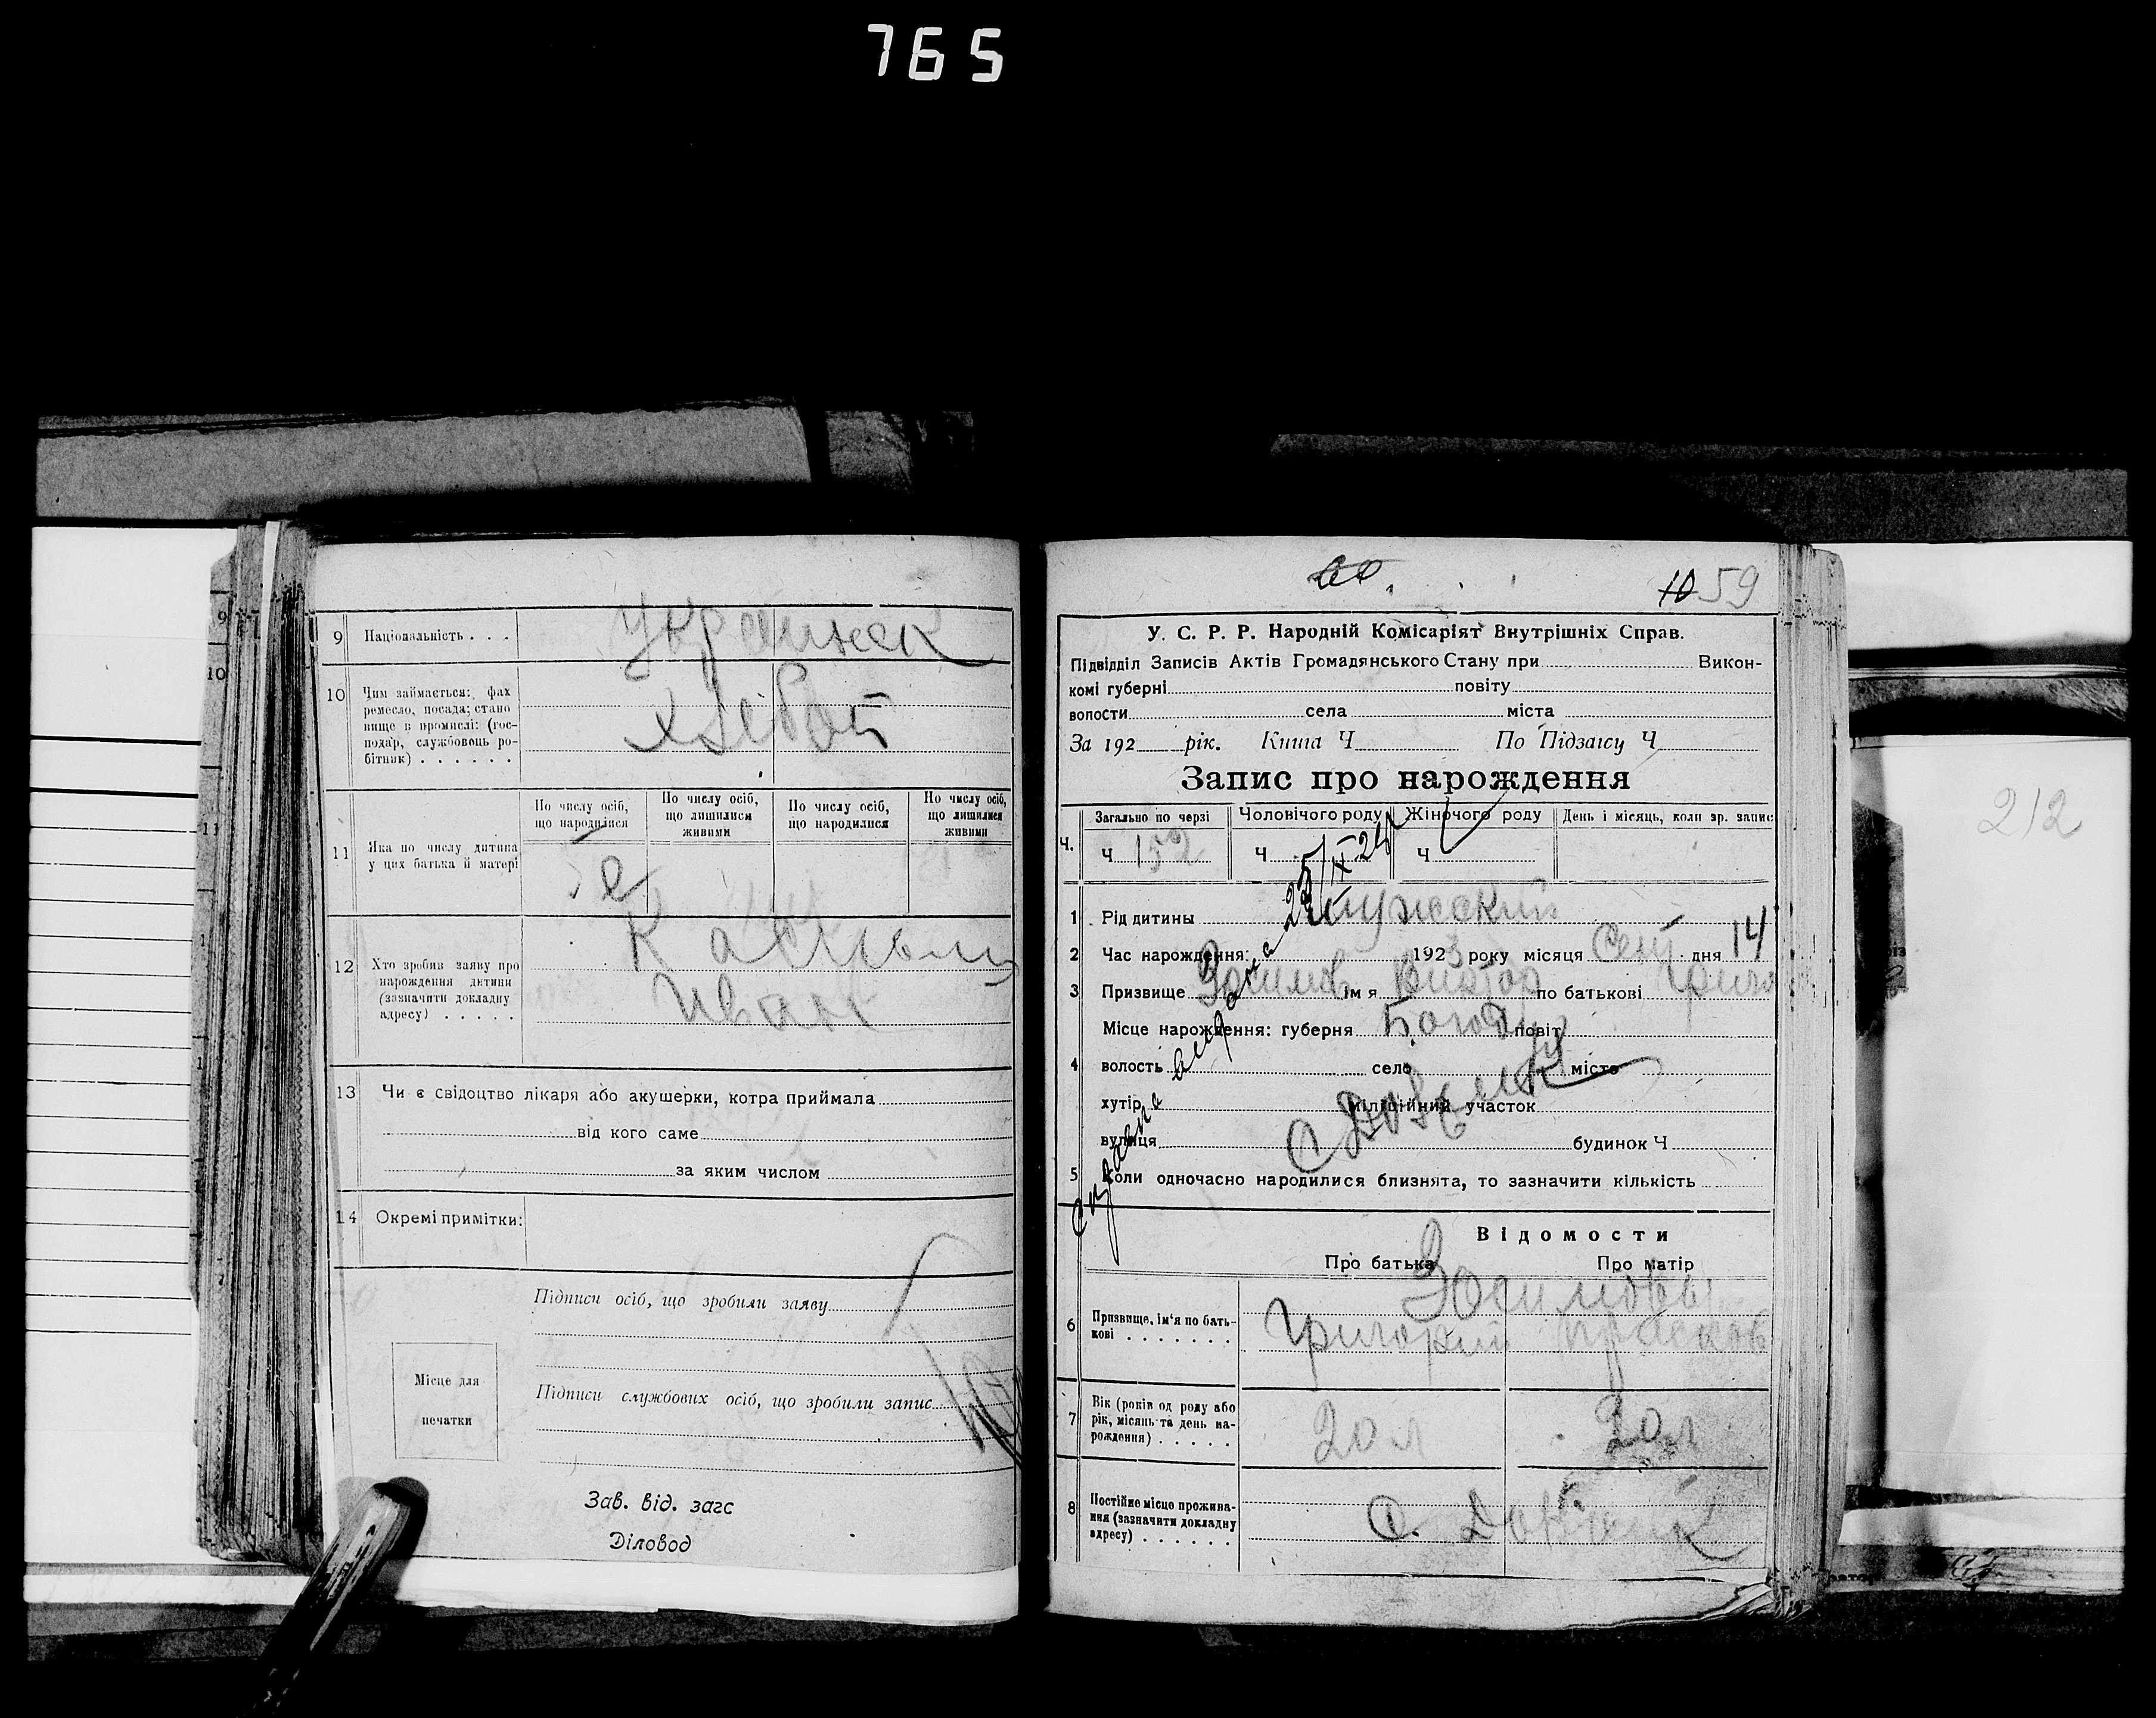 765
9 Національність . . . Украинск
10 Чим займається: фах
ремесло, посада; стано
вище в промислі: (гос-
подар, службовець ро-
бітник) . . . . . .
Хлібоп
11 Яка по числу дитина
у цих батька й матері
По числу осіб,
що народилися
По числу осіб,
що лишилися
живими
По числу осіб,
що народилися
По числу осіб,
що лишилися
живими
12 Хто зробив заяву про
народження дитини
(зазначити докладну
адресу) . . . . .
Иван
13 Чи є свідоцтво лікаря або акушерки, котра приймала
від кого саме
за яким числом
14 Окремі примітки:
Підписи осіб, що зробили заяву
Місце для
печатки
Підписи службових осіб, що зробили запис
Зав. від. загс
Діловод
10 59
У. С. Р. Р. Народній Комісаріят Внутрішніх Справ.
Підвідділ Записів Актів Громадянського Стану при Викон-
комі губерні повіту
волости села міста
За 192 рік. Книга Ч По Підзагсу Ч
Запис про нарождення
Ч. Загально по черзі Чоловічого роду Жіночого роду День і місяць, коли зр. запис
Ч 152 Ч Ч
1 Рід дитини мужский
2 Час нарождення: 1923 року місяця Сент дня 14
3 Призвище Зосимов ім я Виктор по батькові Григо
Місце нарождення: губерня повіт
4 волость село місто
хутір міліційний участок
вулиця будинок Ч
5 Коли одночасно народилися близнята, то зазначити кількість
Відомости
Про батька Про матір
Зосимовы
6 Призвище, ім'я по бать-
кові . . . . . . .
Григорий Прасков
7 Вік (років од роду або
рік, місяць та день на-
рождення) . . . . .
20 л 20 л
8 Постійне місце прожива-
ння (зазначити докладну
адресу) . . . . . .
С.
212